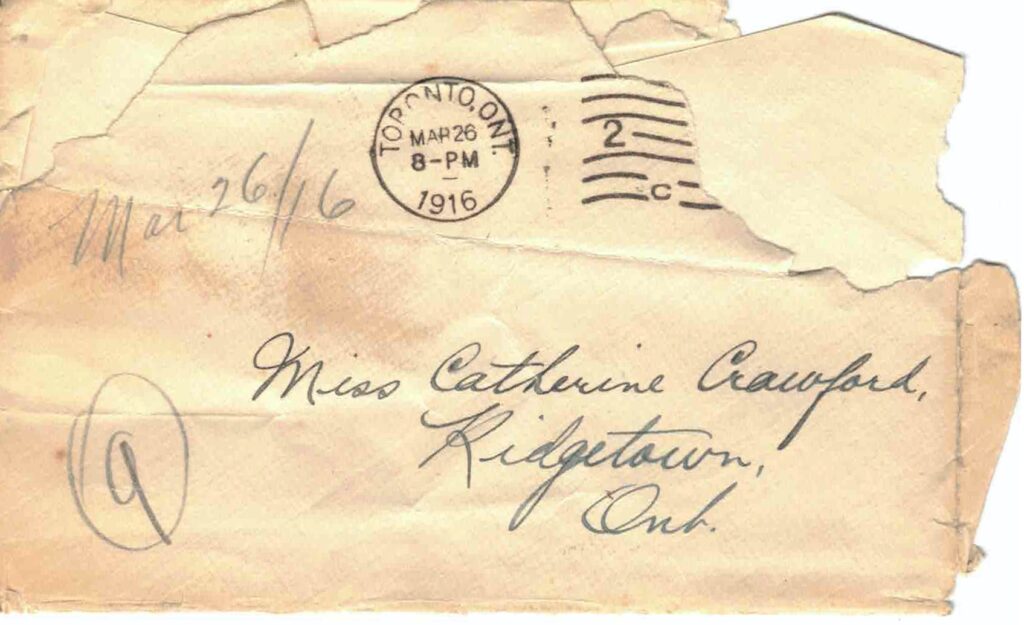 TORONTO, ONT.
MAR 26
8-PM
1916
2
C
Mar 26/16
Miss Catherine Crawford,
Ridgetown,
Ont.
9